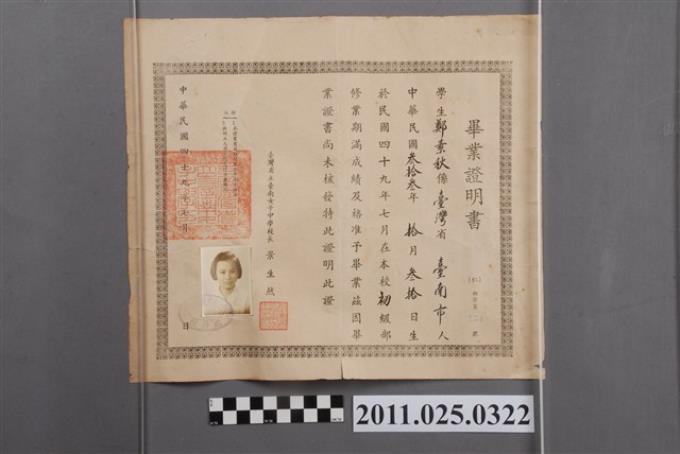 畢業證明書
學生鄭素秋係臺灣省 臺南市人
中華民國叁拾叁年 拾月叁拾日生
於民國四十九年七月在本校初級部
修業期滿成績及格准予畢業茲因畢
業證書尚未核發特此證明此證
臺灣省立臺南女子中學校長 景生然
中華民國四十九年七月 日
2011.025.0322